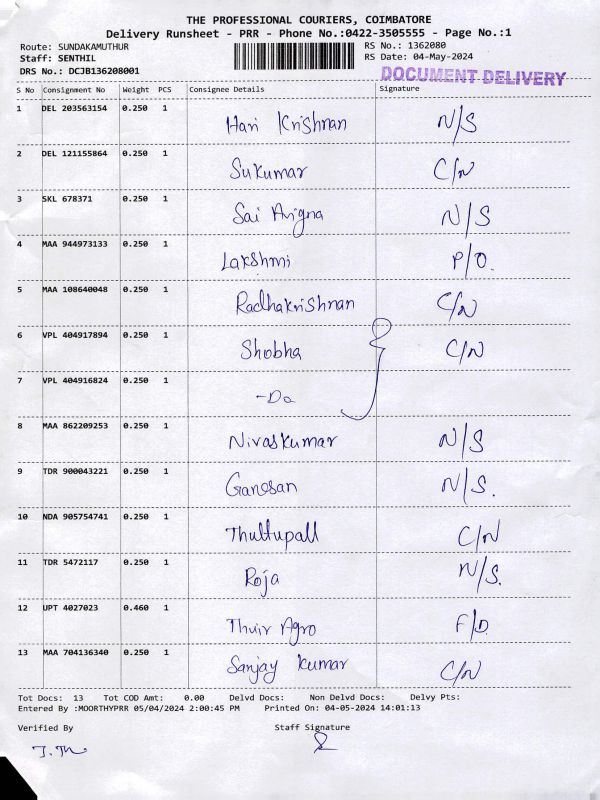 THE PROFESSIONAL COURIERS, COIMBATORE
Delivery Runsheet - PRR - Phone No.:0422-3505555 - Page No.:1
Route: SUNDAKAMUTHUR RS No.: 1362080
Staff: SENTHIL RS Date: 04-May-2024
DRS No.: DCJB136208001 DOCUMENT DELIVERY
S No Consignment No Weight PCS Consignee Details Signature
1 DEL 203563154 0.250 1 Hari Krishnan N/S
2 DEL 121155864 0.250 1 Sukumar C/N
3 SKL 678371 0.250 1 Sai N/S
4 MAA 944973133 0.250 1 Lakshmi P/O.
5 MAA 108640048 0.250 1 Radhakrishnan C/N
6 VPL 404917894 0.250 1 Shobha C/N
7 VPL 404916824 0.250 1 -Do
8 MAA 862209253 0.250 1 Nivaskumar N/S
9 TDR 900043221 0.250 1 Ganesan N/S.
10 NDA 905754741 0.250 1 C/N
11 TDR 5472117 0.250 1 Roja N/S.
12 UPT 4027023 0.460 1 Agro F/D.
13 MAA 704136340 0.250 1 Sanjay Kumar C/N
Tot Docs: 13 Tot COD Amt: 0.00 Delvd Docs: Non Delvd Docs: Delvy Pts:
Entered By :MOORTHYPRR 05/04/2024 2:00:45 PM Printed On: 04-05-2024 14:01:13
Verified By Staff Signature